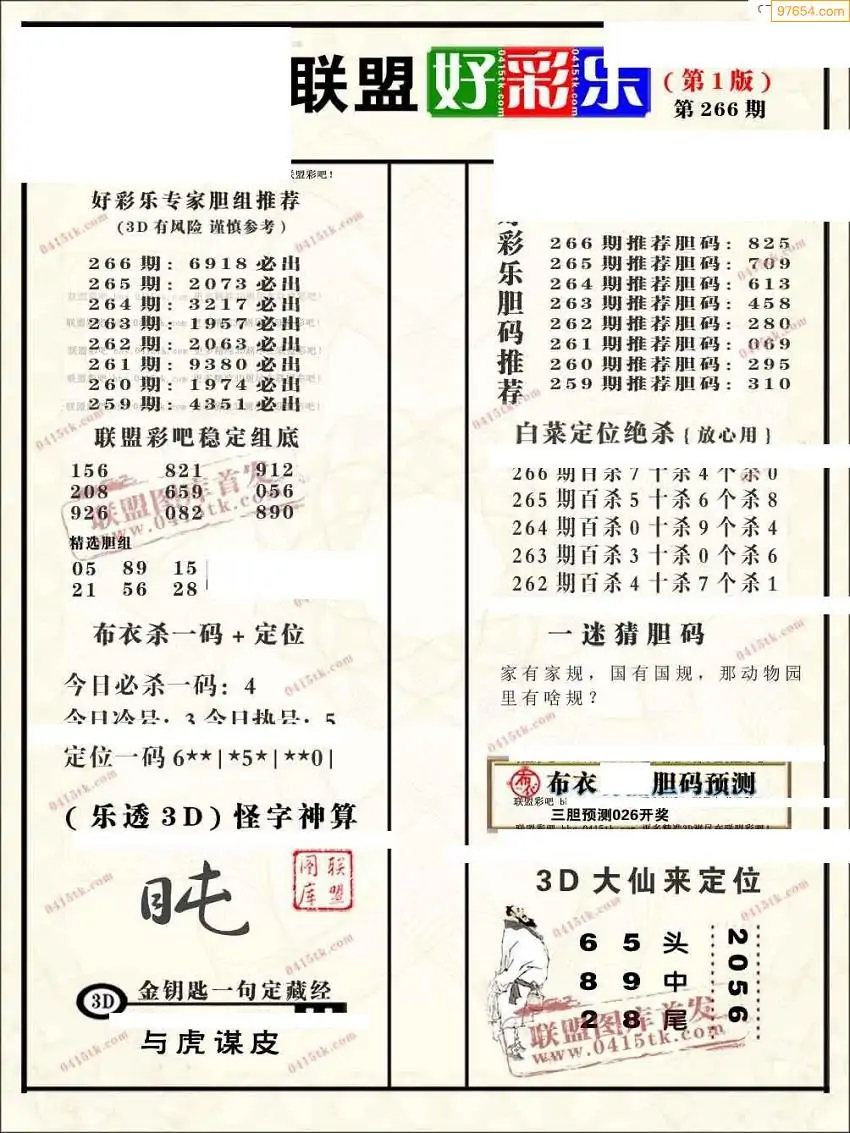 97654.com
联盟好彩乐
(第1版)
第266期
好彩乐专家胆组推荐
(3D有风险 谨慎参考)
266期: 6918必出
265期: 2073必出
264期: 3217必出
263期: 1957必出
262期: 2063必出
261期: 9380必出
260期: 1974必出
259期: 4351必出
联盟彩吧稳定组底
156 821 912
208 659 056
926 082 890
精选胆组
05 89 15
21 56 28
布衣杀一码+定位
今日必杀一码: 4
今日冷号: 3 今日热号: 5
定位一码6**|*5*|**0|
(乐透3D)怪字神算
联盟图库
3D 金钥匙一句定藏经
与虎谋皮
彩乐胆码推荐
266期推荐胆码: 825
265期推荐胆码: 709
264期推荐胆码: 613
263期推荐胆码: 458
262期推荐胆码: 280
261期推荐胆码: 069
260期推荐胆码: 295
259期推荐胆码: 310
白菜定位绝杀{放心用}
266期百杀7十杀4个杀0
265期百杀5十杀6个杀8
264期百杀0十杀9个杀4
263期百杀3十杀0个杀6
262期百杀4十杀7个杀1
一迷猜胆码
家有家规，国有国规，那动物园
里有啥规？
布衣 布衣 胆码预测
联盟彩吧
三胆预测026开奖
3D大仙来定位
6 5 头
8 9 中
2 8 尾
2056
联盟图库首发
www.0415tk.com
联盟图库首发
www.0415tk.com
0415tk.com